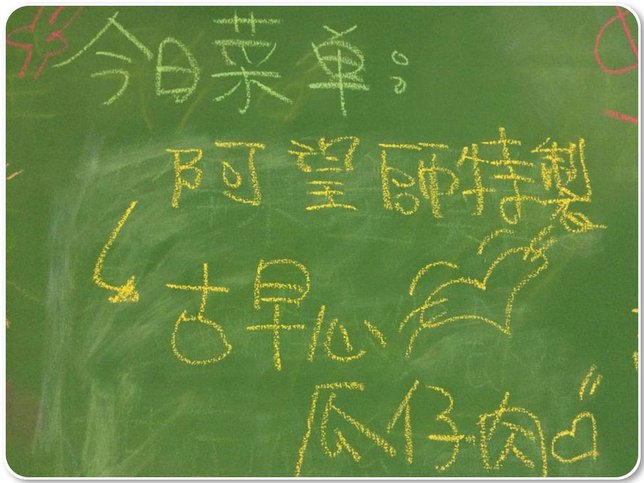 今日菜单:
阿望師特製
古早心
瓜仔肉